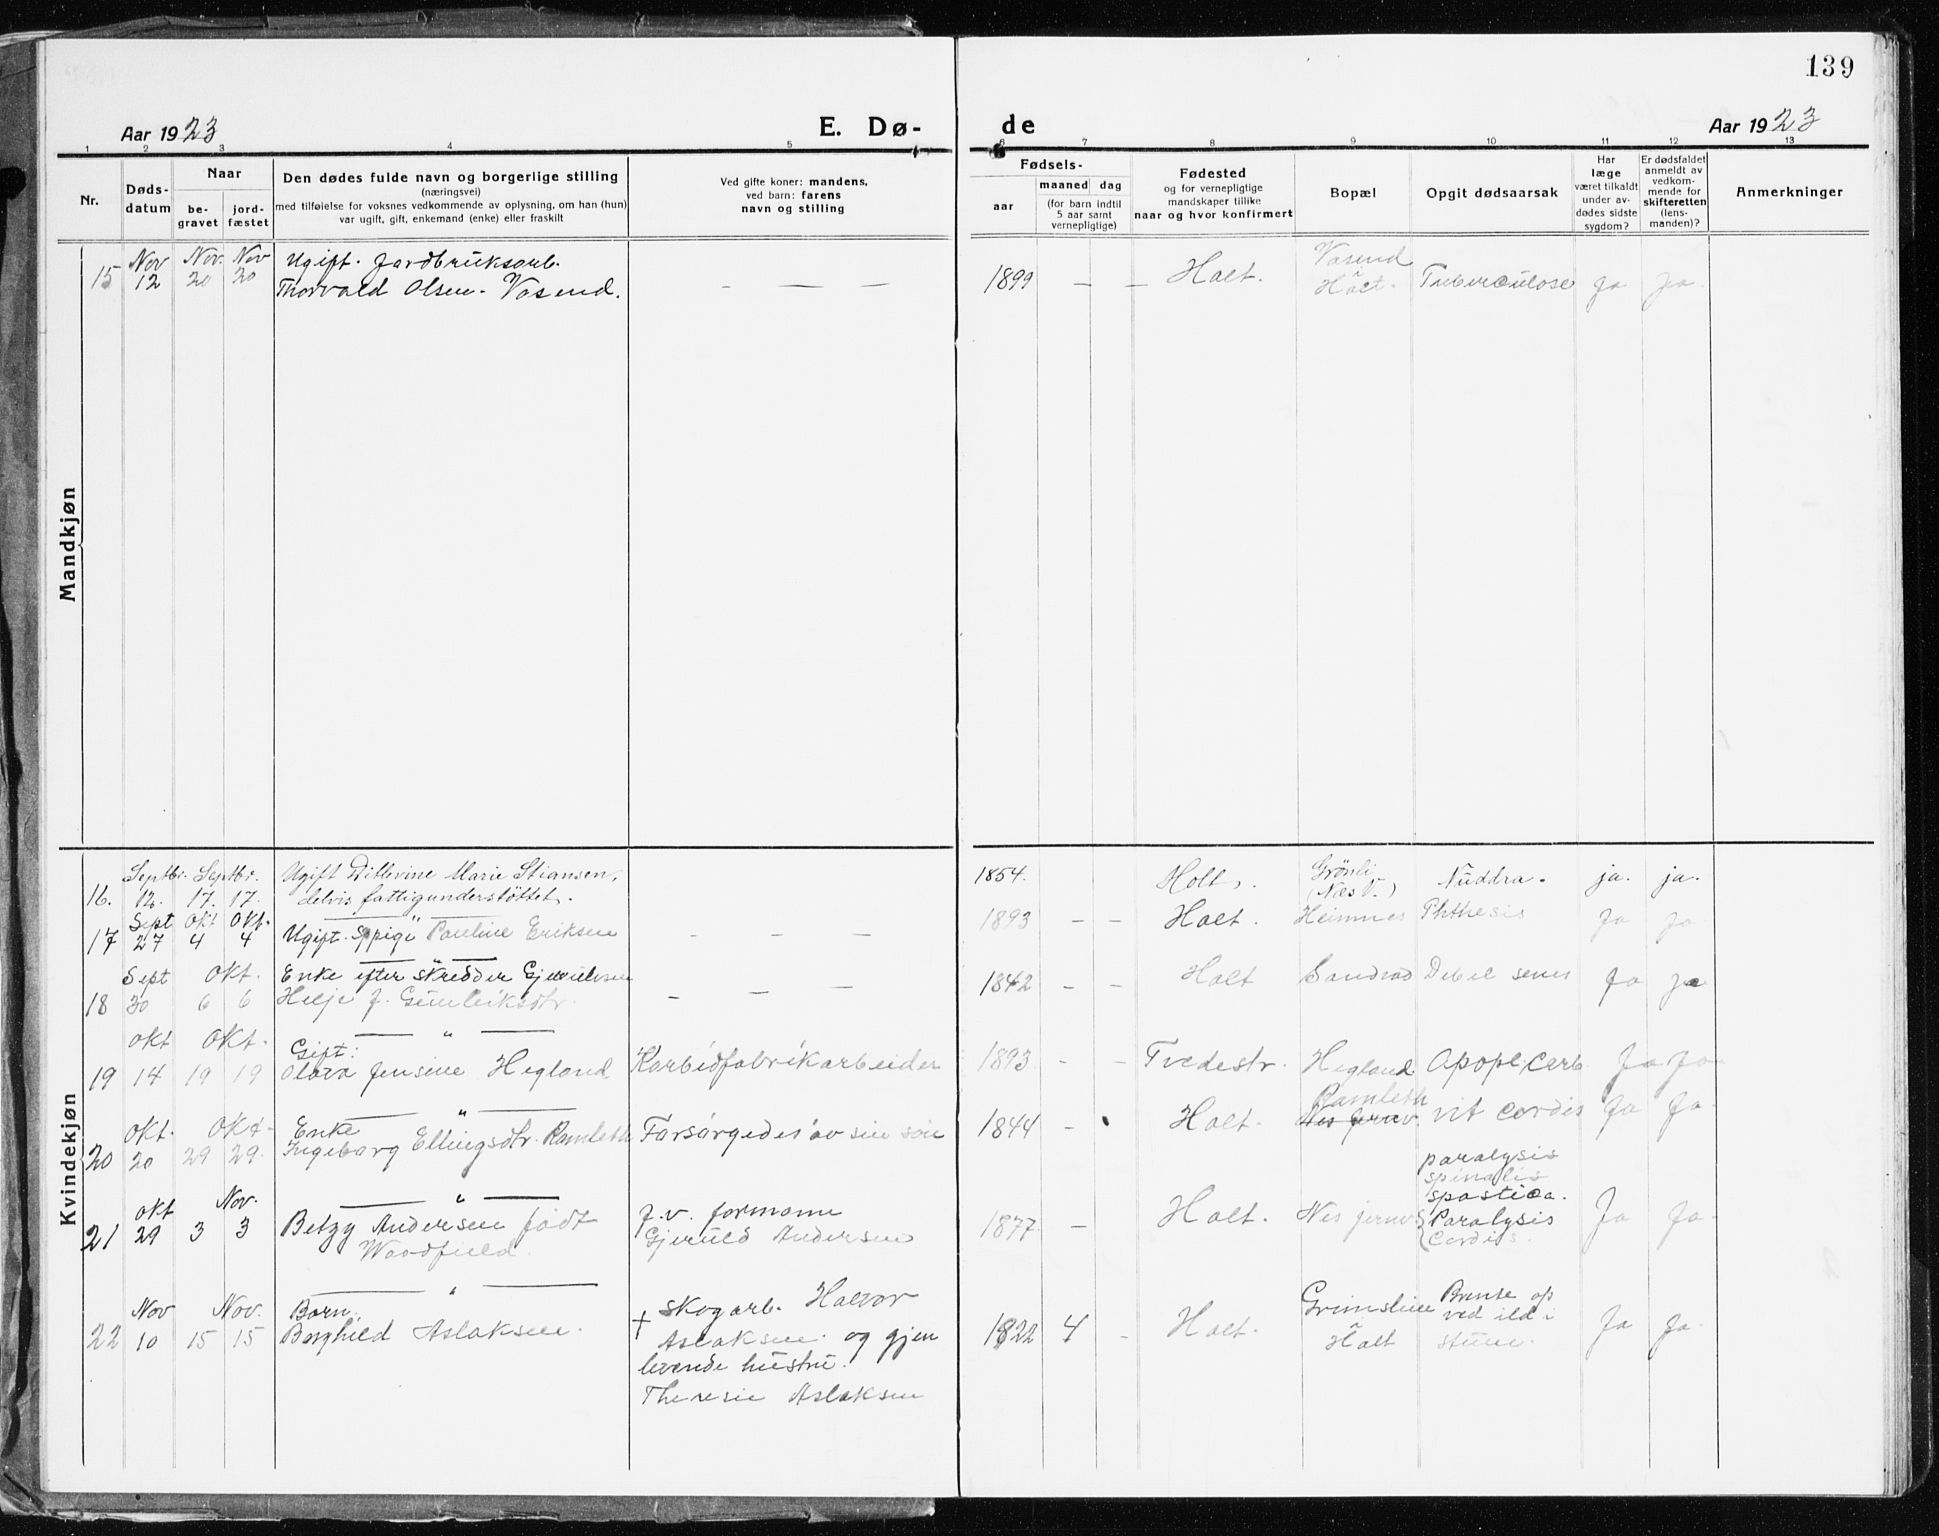 139
Aar 1923
E. Dø-
de
Aar 1923
1 2 3 4 5 6 7 8 9 10 11 12 13
Nr.
Døds-
datum
Naar
be-
gravet
jord-
fæstet
Den dødes fulde navn og borgerlige stilling
(næringsvei)
med tilføielse for voksnes vedkommende av oplysning, om han (hun)
var ugift, gift, enkemand (enke) eller fraskilt
Ved gifte koner: mandens,
ved barn: farens
navn og stilling
Fødsels-
aar
maaned dag
(for barn indtil
5 aar samt
vernepligtige)
Fødested
og for vernepligtige
mandskaper tillike
naar og hvor konfirmert
Bopæl
Opgit dødsaarsak
Har
læge
været tilkaldt
under av-
dødes sidste
sygdom?
Er dødsfaldet
anmeldt av
vedkom-
mende for
skifteretten
(lens-
manden)?
Anmerkninger
Mandkjøn
Nov Nov. Nov Ugift. Jordbruksarb. Vasend
15 12 20 20 Thorvald Olsen. Vasend. — — — 1899 — — Holt. i Holt. Tuberculose ja ja.
Kvindekjøn
Septbr. Septbr. Ugift Ditlevine Marie Stiansen, 1854. Holt. Grönli Nuddra. ja. ja.
16. 12. 17. 17. delvis fattigunderstöttet. (Næs V.)
Sept Okt Okt. — " —
17 27 4 4 Ugift. Pauline Eriksen — — — 1893 — — Holt. Heimnes Phthesis Ja ja
Sept Okt. Enke efter skredder
18 30 6 6 Helje J. Gunleiksdtr. — — — 1842 — — Holt Sandnæs Debil senes Ja ja
okt Okt. — " —
Gift:
19 14 19 19 Olava Jensine Hegland Karbidfabrikarbeider 1893 — — Tvedestr. Hegland Apopl. cerb. Ja Ja
— " —
okt. Okt. Enke Ramleth
20 20 29 29. Ingeborg Ellingsdtr. Ramleth Forsørgedes av sin søn 1844 — Holt. Nes jernv. vit cordis Ja Ja.
— " —
okt Nov. f. v. formann paralysis
spinalis
spastica.
21 29 3 3 Betzy Andersen født Gjeruld Andersen 1877 — Holt. Nes jernv. Paralysis Ja Ja.
Woodfield. Cordis.
— " —
Nov Nov. Barn: + skogarb. Halvor Grimsline Brente op
22 10 15 15 Borghild Aslaksen. Aslaksen. og gjen 1922 4 — Holt. i Holt ved ild i Ja Ja.
levende hustru. stuen.
Theresie Aslaksen